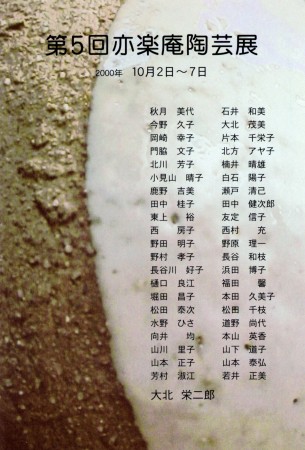 第5回亦楽庵陶芸展
2000年 10月2日～7日
秋月 美代 石井 和美
今野 久子 大北 茂美
岡崎 幸子 片本 千栄子
門脇 文子 北方 アヤ子
北川 芳子 楠井 晴雄
小見山 晴子 白石 陽子
鹿野 吉美 瀬戸 清己
田中 桂子 田中 健次郎
東上 裕 友定 信子
西 房子 西村 充
野田 明子 野原 理一
野村 孝子 長谷 和枝
長谷川 好子 浜田 博子
樋口 良江 福田 馨
堀田 昌子 本田 久美子
松田 泰次 松囿 千枝
水野 ひさ 道野 尚代
向井 均 本山 英香
山川 里子 山下 道子
山本 正子 山本 泰弘
芳村 淑江 若井 正美
大北 栄二郎